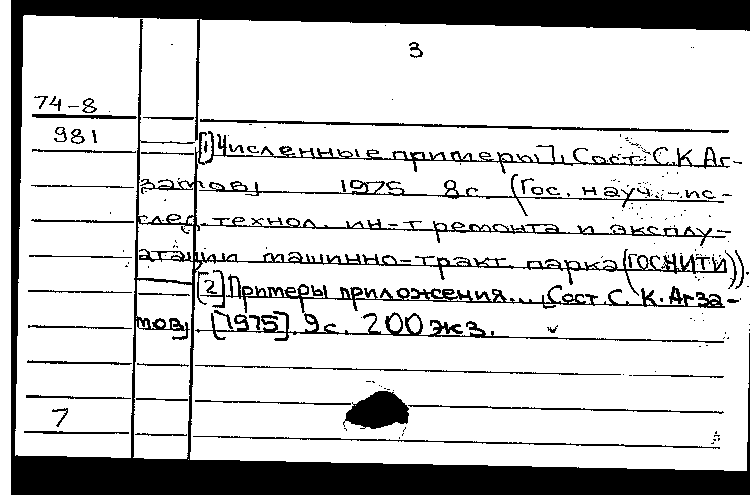 3
74-8
981
[1] Численные примеры]. [Сост. С.К. Аг-
затов] 1975 8с. (Гос. науч.-ис-
след. технол. ин-т ремонта и эксплу-
атации машинно-тракт. парка (ГОСНИТИ)).
[2] Примеры приложения... [Сост. С. К. Агза-
тов]. [1975]. 9с. 200 экз.
7